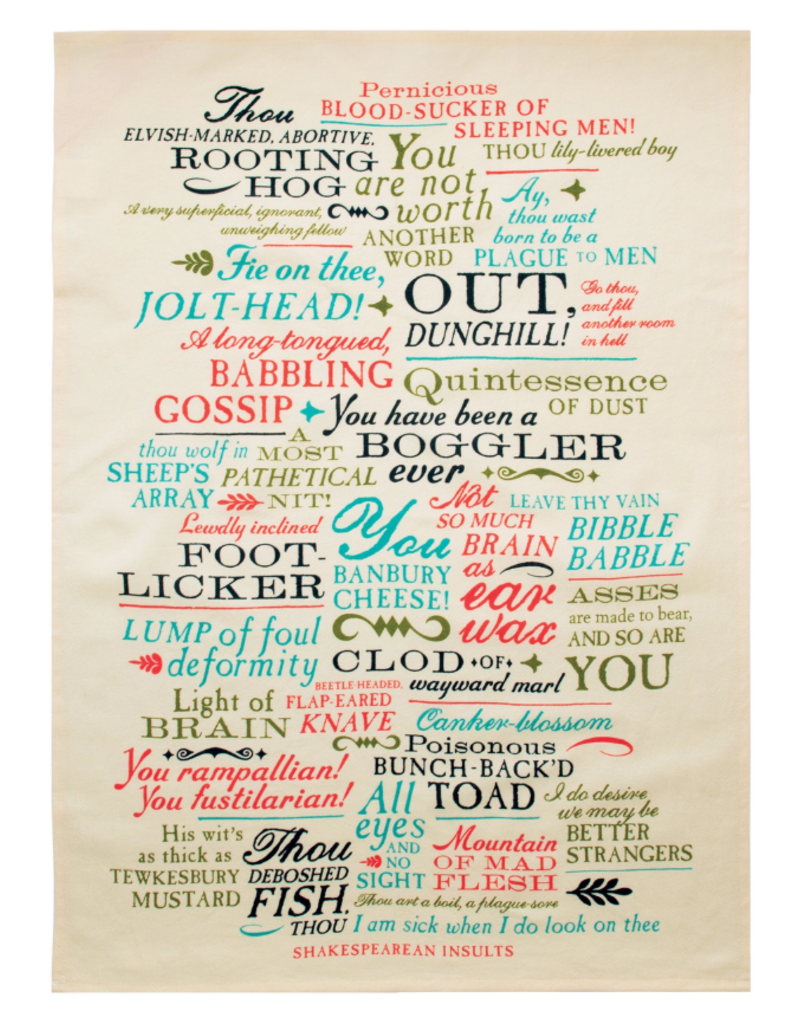 Thou
ELVISH-MARKED, ABORTIVE,
ROOTING
HOG
Pernicious
BLOOD-SUCKER OF
SLEEPING MEN!
You
are not
worth
ANOTHER
WORD
THOU lily-livered boy
A very superficial, ignorant,
unweighing fellow
Ay,
thou wast
born to be a
PLAGUE TO MEN
Fie on thee,
JOLT-HEAD!
OUT,
DUNGHILL!
Go thou,
and fill
another room
in hell
A long-tongued,
BABBLING
GOSSIP
Quintessence
OF DUST
You have been a
BOGGLER
ever
thou wolf in
SHEEP'S
ARRAY
A
MOST
PATHETICAL
NIT!
Not
SO MUCH
BRAIN
as
ear
wax
LEAVE THY VAIN
BIBBLE
BABBLE
Lewdly inclined
FOOT-
LICKER
You
BANBURY
CHEESE!
ASSES
are made to bear,
AND SO ARE
YOU
LUMP of foul
deformity
CLOD OF
wayward marl
Light of
BRAIN
BEETLE-HEADED,
FLAP-EARED
KNAVE
Canker-blossom
You rampallian!
You fustilarian!
Poisonous
BUNCH-BACK'D
TOAD
All
eyes
AND
NO
SIGHT
I do desire
we may be
BETTER
STRANGERS
His wit's
as thick as
TEWKESBURY
MUSTARD
Thou
DEBOSHED
FISH,
THOU
Mountain
OF MAD
FLESH
Thou art a boil, a plague-sore
I am sick when I do look on thee
SHAKESPEAREAN INSULTS